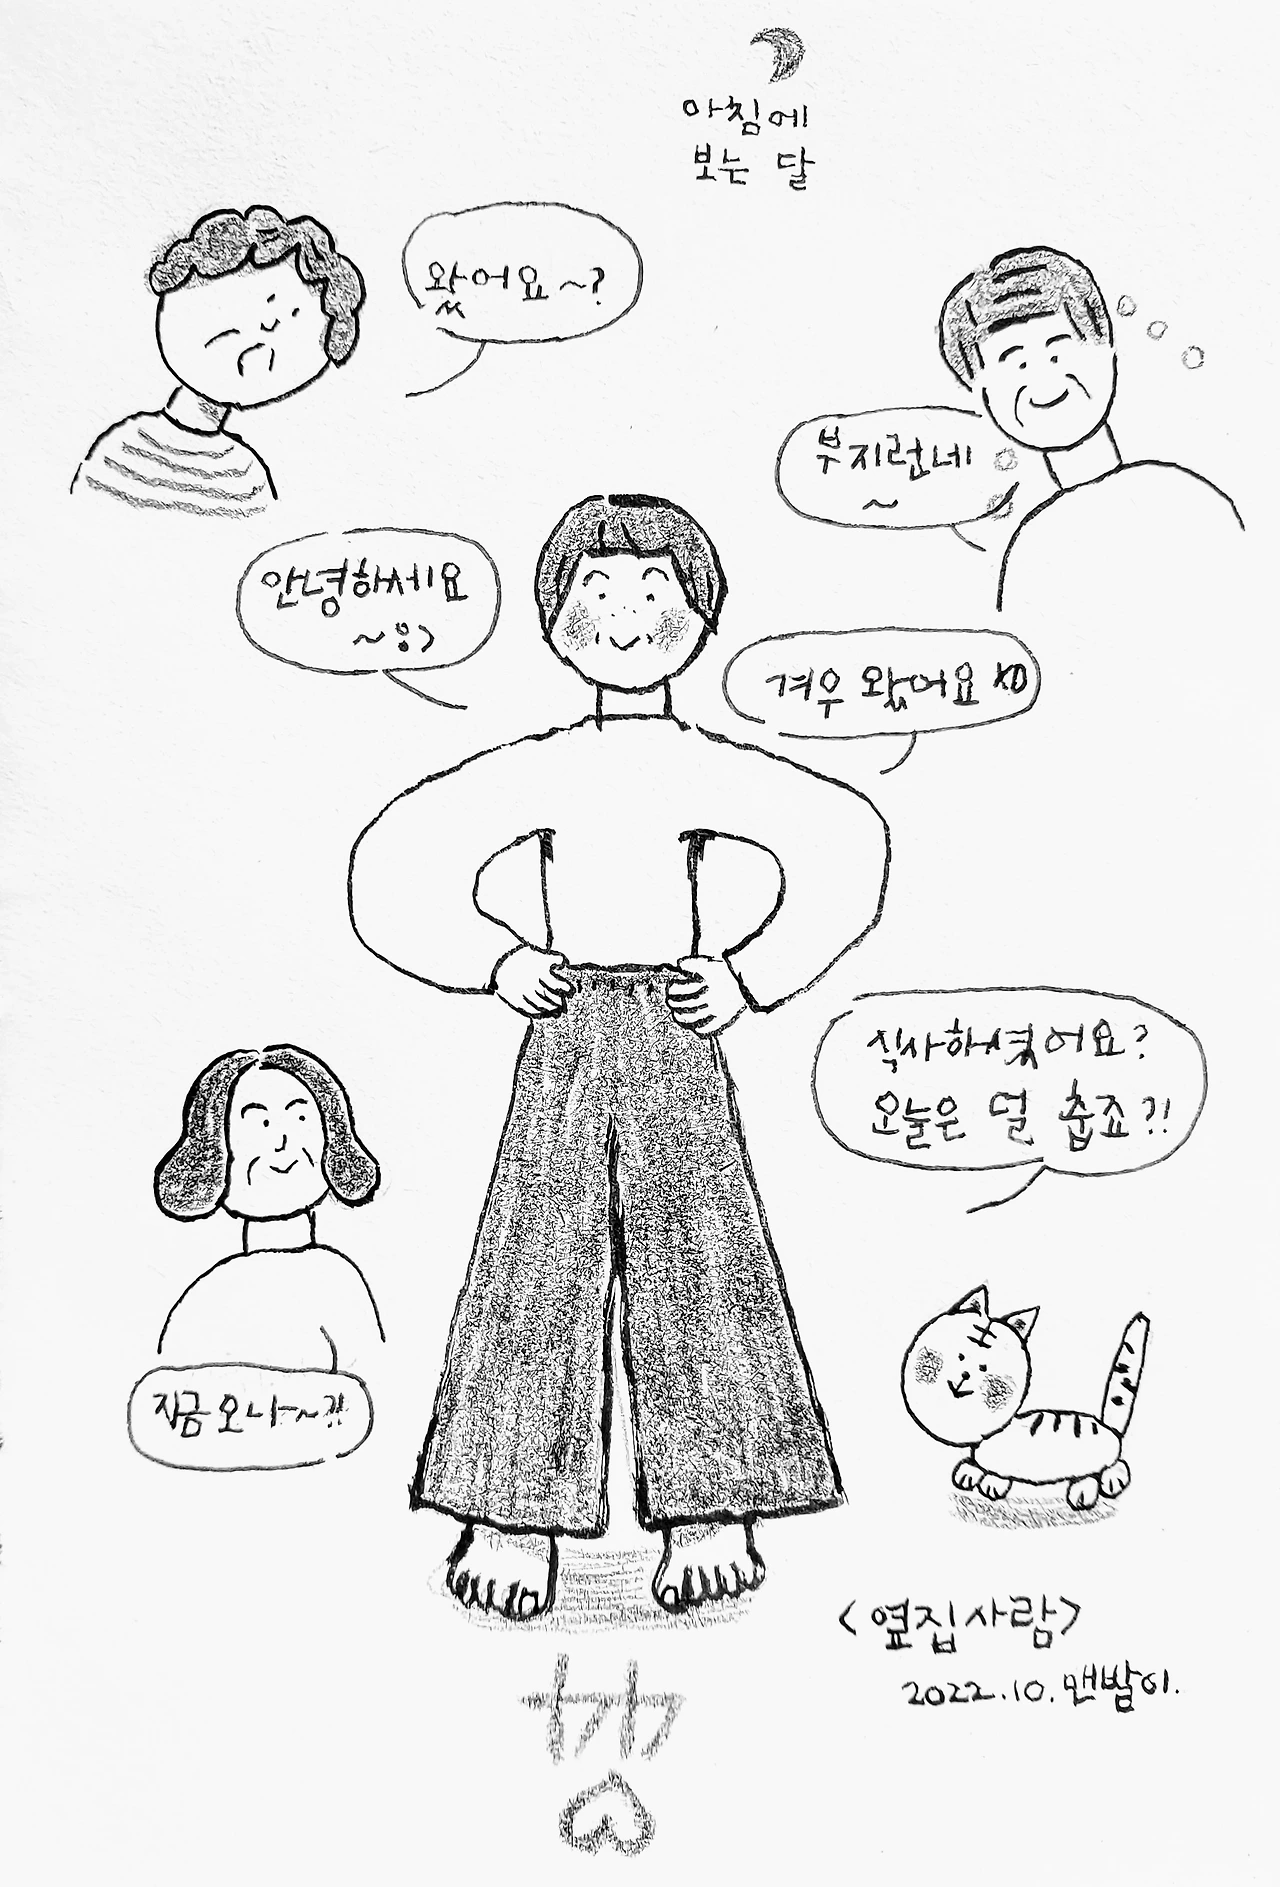 아침에
보는 달
왔어요~?
부지런네
~
안녕하세요
~:)
겨우 왔어요 XD
식사하셨어요?
오늘은 덜 춥죠?!
지금 오나~?!
<옆집사람>
2022.10. 맨발이.